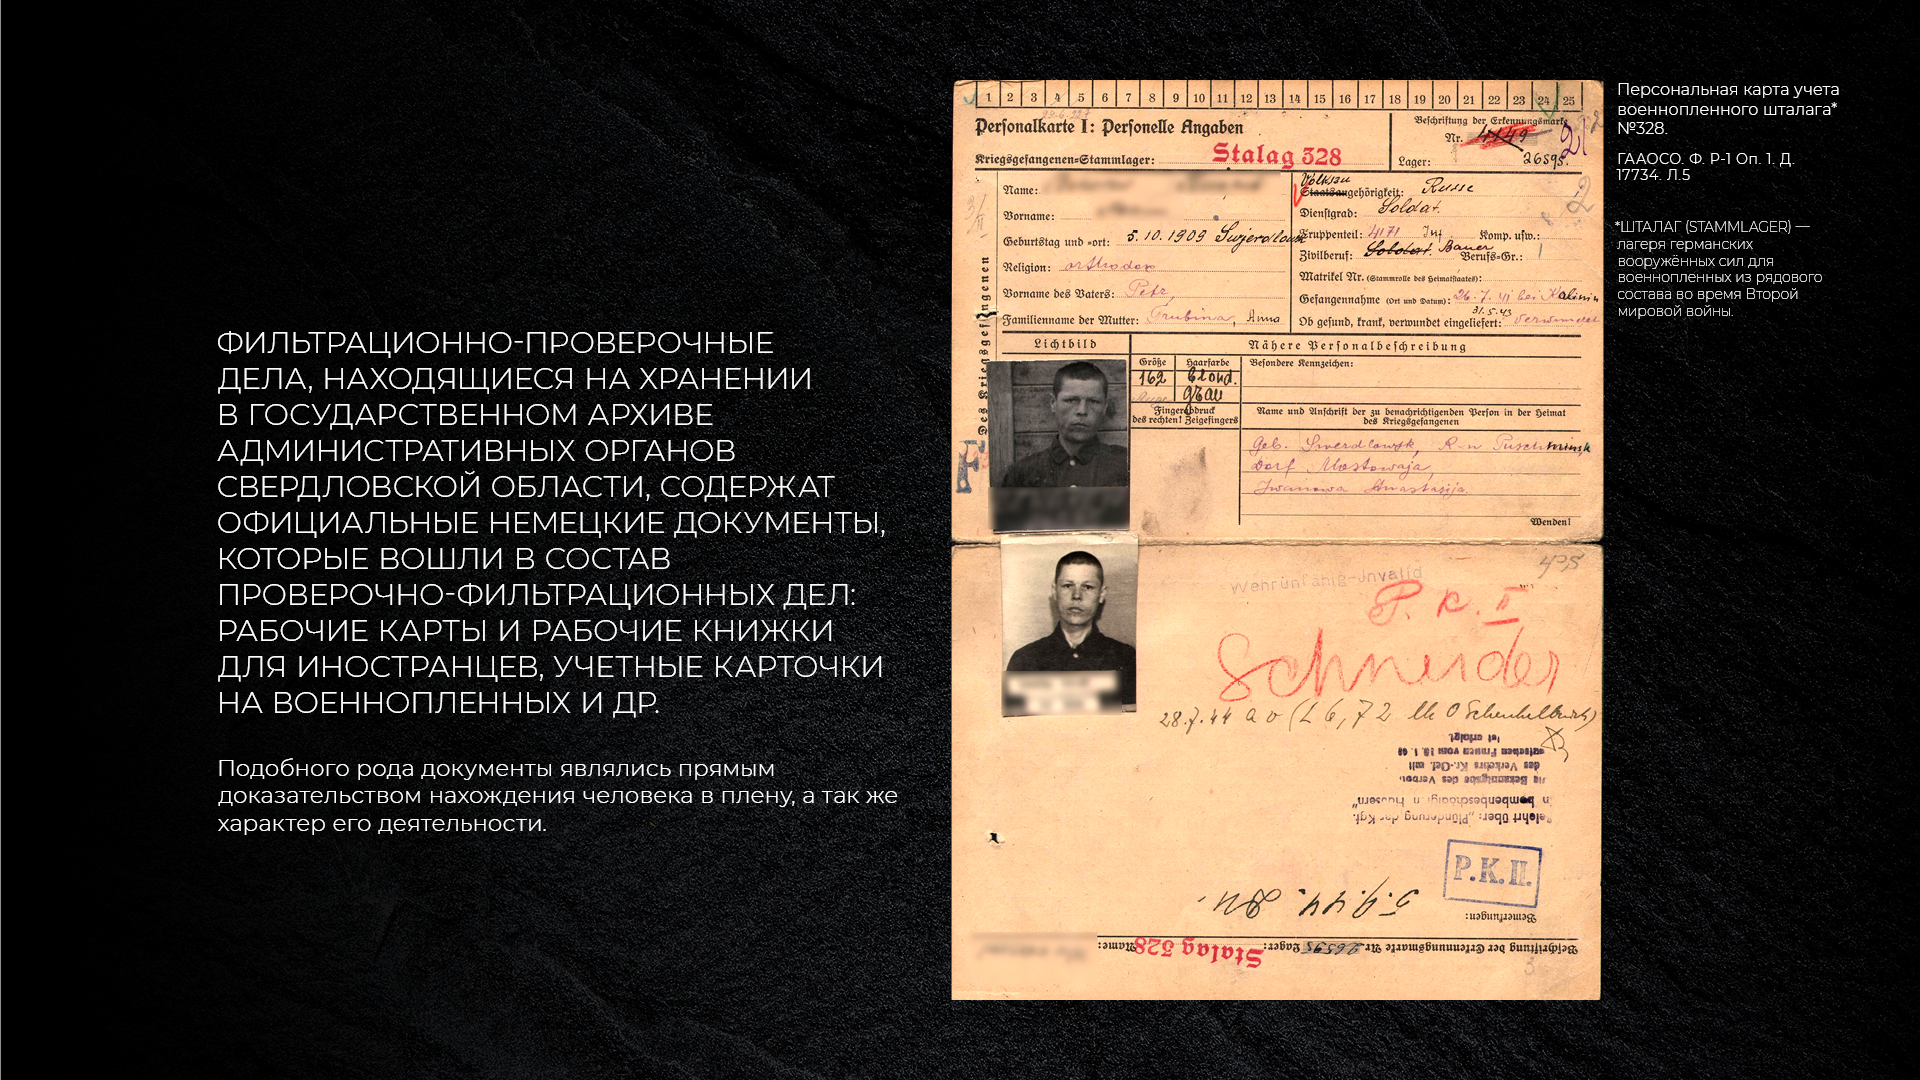 ФИЛЬТРАЦИОННО-ПРОВЕРОЧНЫЕ
ДЕЛА, НАХОДЯЩИЕСЯ НА ХРАНЕНИИ
В ГОСУДАРСТВЕННОМ АРХИВЕ
АДМИНИСТРАТИВНЫХ ОРГАНОВ
СВЕРДЛОВСКОЙ ОБЛАСТИ, СОДЕРЖАТ
ОФИЦИАЛЬНЫЕ НЕМЕЦКИЕ ДОКУМЕНТЫ,
КОТОРЫЕ ВОШЛИ В СОСТАВ
ПРОВЕРОЧНО-ФИЛЬТРАЦИОННЫХ ДЕЛ:
РАБОЧИЕ КАРТЫ И РАБОЧИЕ КНИЖКИ
ДЛЯ ИНОСТРАНЦЕВ, УЧЕТНЫЕ КАРТОЧКИ
НА ВОЕННОПЛЕННЫХ И ДР.
Подобного рода документы являлись прямым
доказательством нахождения человека в плену, а так же
характер его деятельности.
1 2 3 4 5 6 7 8 9 10 11 12 13 14 15 16 17 18 19 20 21 22 23 24 25
Personalkarte I: Personelle Angaben
Kriegsgefangenen=Stammlager: Stalag 328
Beschriftung der Erkennungsmarke
Nr. 4149
Lager: 26595.
Des Kriegsgefangenen
Name:
Vorname:
Geburtstag und =ort: 5.10.1909
Religion: orthodox
Vorname des Vaters: Petr,
Familienname der Mutter: Trubina, Anna
Staatsangehörigkeit: Russe
Dienstgrad: Soldat.
Truppenteil: Inf Komp. usw.:
Zivilberuf: Soldat. Bauer Berufs=Gr.:
Matrikel Nr. (Stammrolle des Heimatstaates):
Gefangennahme (Ort und Datum): bei Kalinin
31.5.43
Ob gesund, krank, verwundet eingeliefert: verwundet
Lichtbild
Nähere Personalbeschreibung
Größe Haarfarbe Besondere Kennzeichen:
162 blond.
grau
Fingerabdruck
des rechten! Zeigefingers
Name und Anschrift der zu benachrichtigenden Person in der Heimat
des Kriegsgefangenen
Geb. Swerdlowsk,
Dorf Mostowaja,
Iwanowa Anastasija.
Wenden!
Wehrunfähig-Invalid
P. K. II
Schneider
28.7.44
P.K.II.
Bemerkungen:
Beschriftung der Erkennungsmarke Nr. 26595 Lager: Stalag 328 Name:
Персональная карта учета
военнопленного шталага*
№328.
ГААОСО. Ф. Р-1 Оп. 1. Д.
17734. Л.5
*ШТАЛАГ (STAMMLAGER) —
лагеря германских
вооружённых сил для
военнопленных из рядового
состава во время Второй
мировой войны.